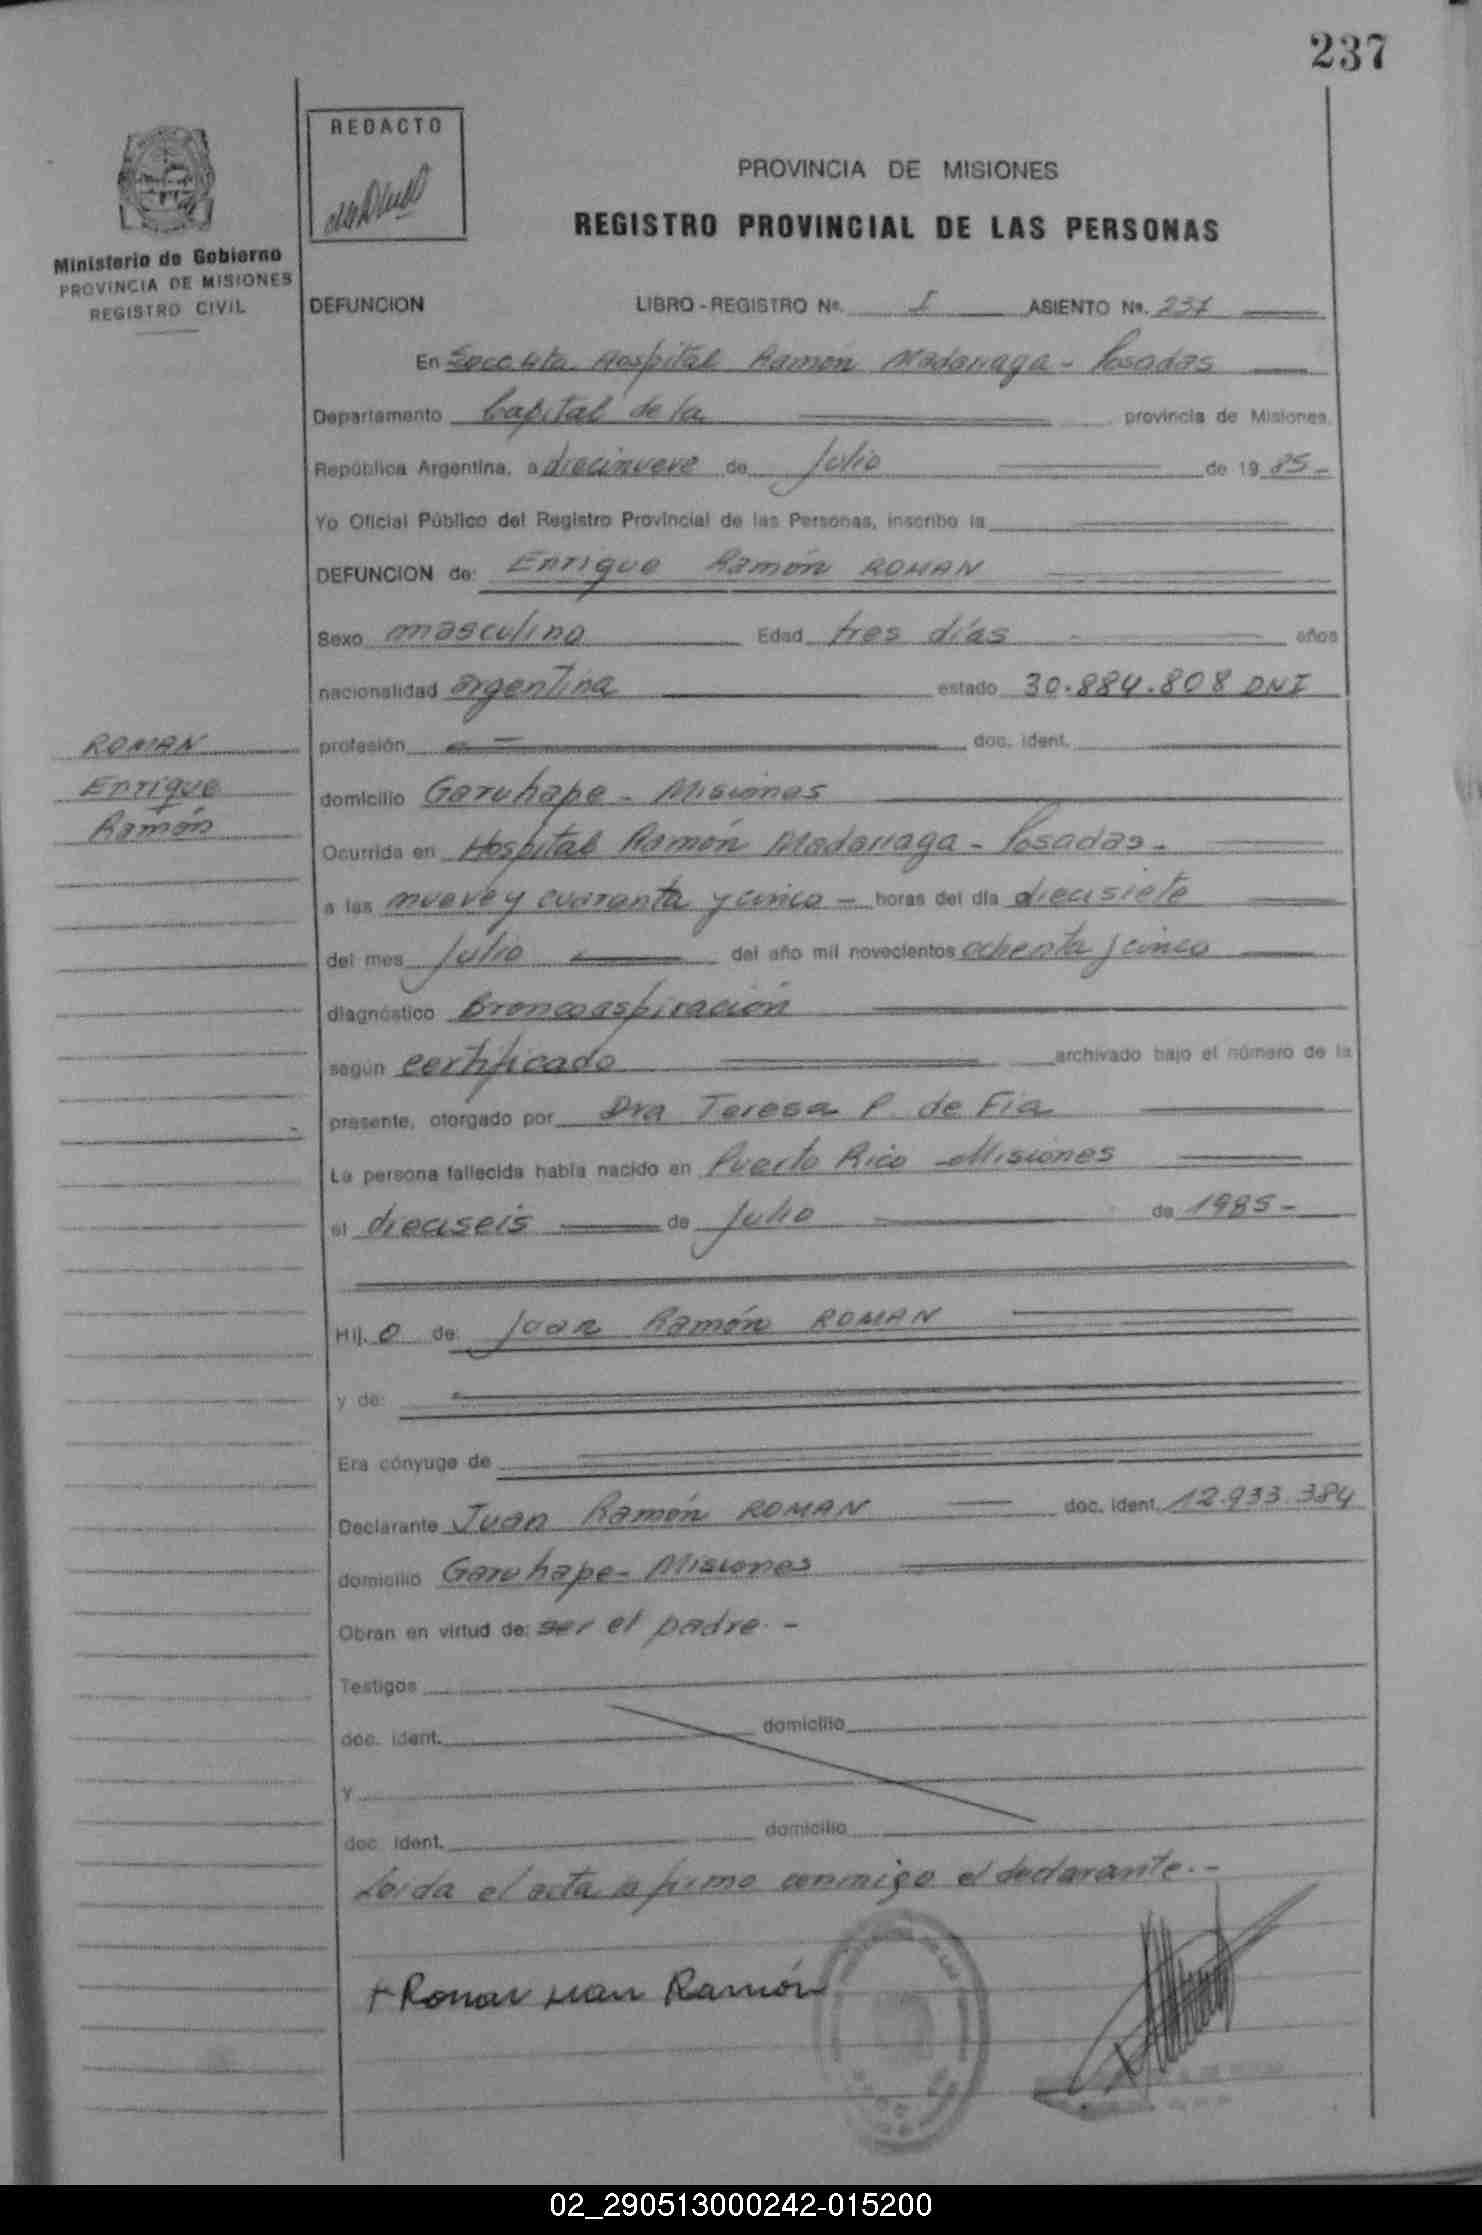 237
REDACTO
PROVINCIA DE MISIONES
REGISTRO PROVINCIAL DE LAS PERSONAS
Ministerio de Gobierno
PROVINCIA DE MISIONES
REGISTRO CIVIL
DEFUNCION LIBRO-REGISTRO Nº. I ASIENTO Nº. 237
En Secc. 4ta. Hospital Ramón Madariaga - Posadas
Departamento Capital de la provincia de Misiones,
República Argentina, a diecinueve de Julio de 1985-
Yo Oficial Público del Registro Provincial de las Personas, inscribo la
DEFUNCION de: Enrique Ramón ROMAN
Sexo masculino Edad tres días años
nacionalidad argentina estado 30.884.808 DNI
ROMAN
Enrique
Ramón
profesión - doc. ident.
domicilio Garuhape - Misiones
Ocurrida en Hospital Ramón Madariaga - Posadas -
a las nueve y cuarenta y cinco - horas del día diecisiete
del mes Julio del año mil novecientos ochenta y cinco
diagnóstico Broncoaspiración
según certificado archivado bajo el número de la
presente, otorgado por Dra Teresa P. de Fia
La persona fallecida había nacido en Puerto Rico - Misiones
el dieciseis de Julio de 1985-
Hij. o de: Juan Ramón ROMAN
y de:
Era cónyuge de
Declarante Juan Ramón ROMAN doc. ident. 12.933.384
domicilio Garuhape - Misiones
Obran en virtud de: ser el padre. -
Testigos
doc. ident. domicilio
Y
doc. ident. domicilio
Leida el acta la firma conmigo el declarante. -
+ Roman Juan Ramón
02_290513000242-015200